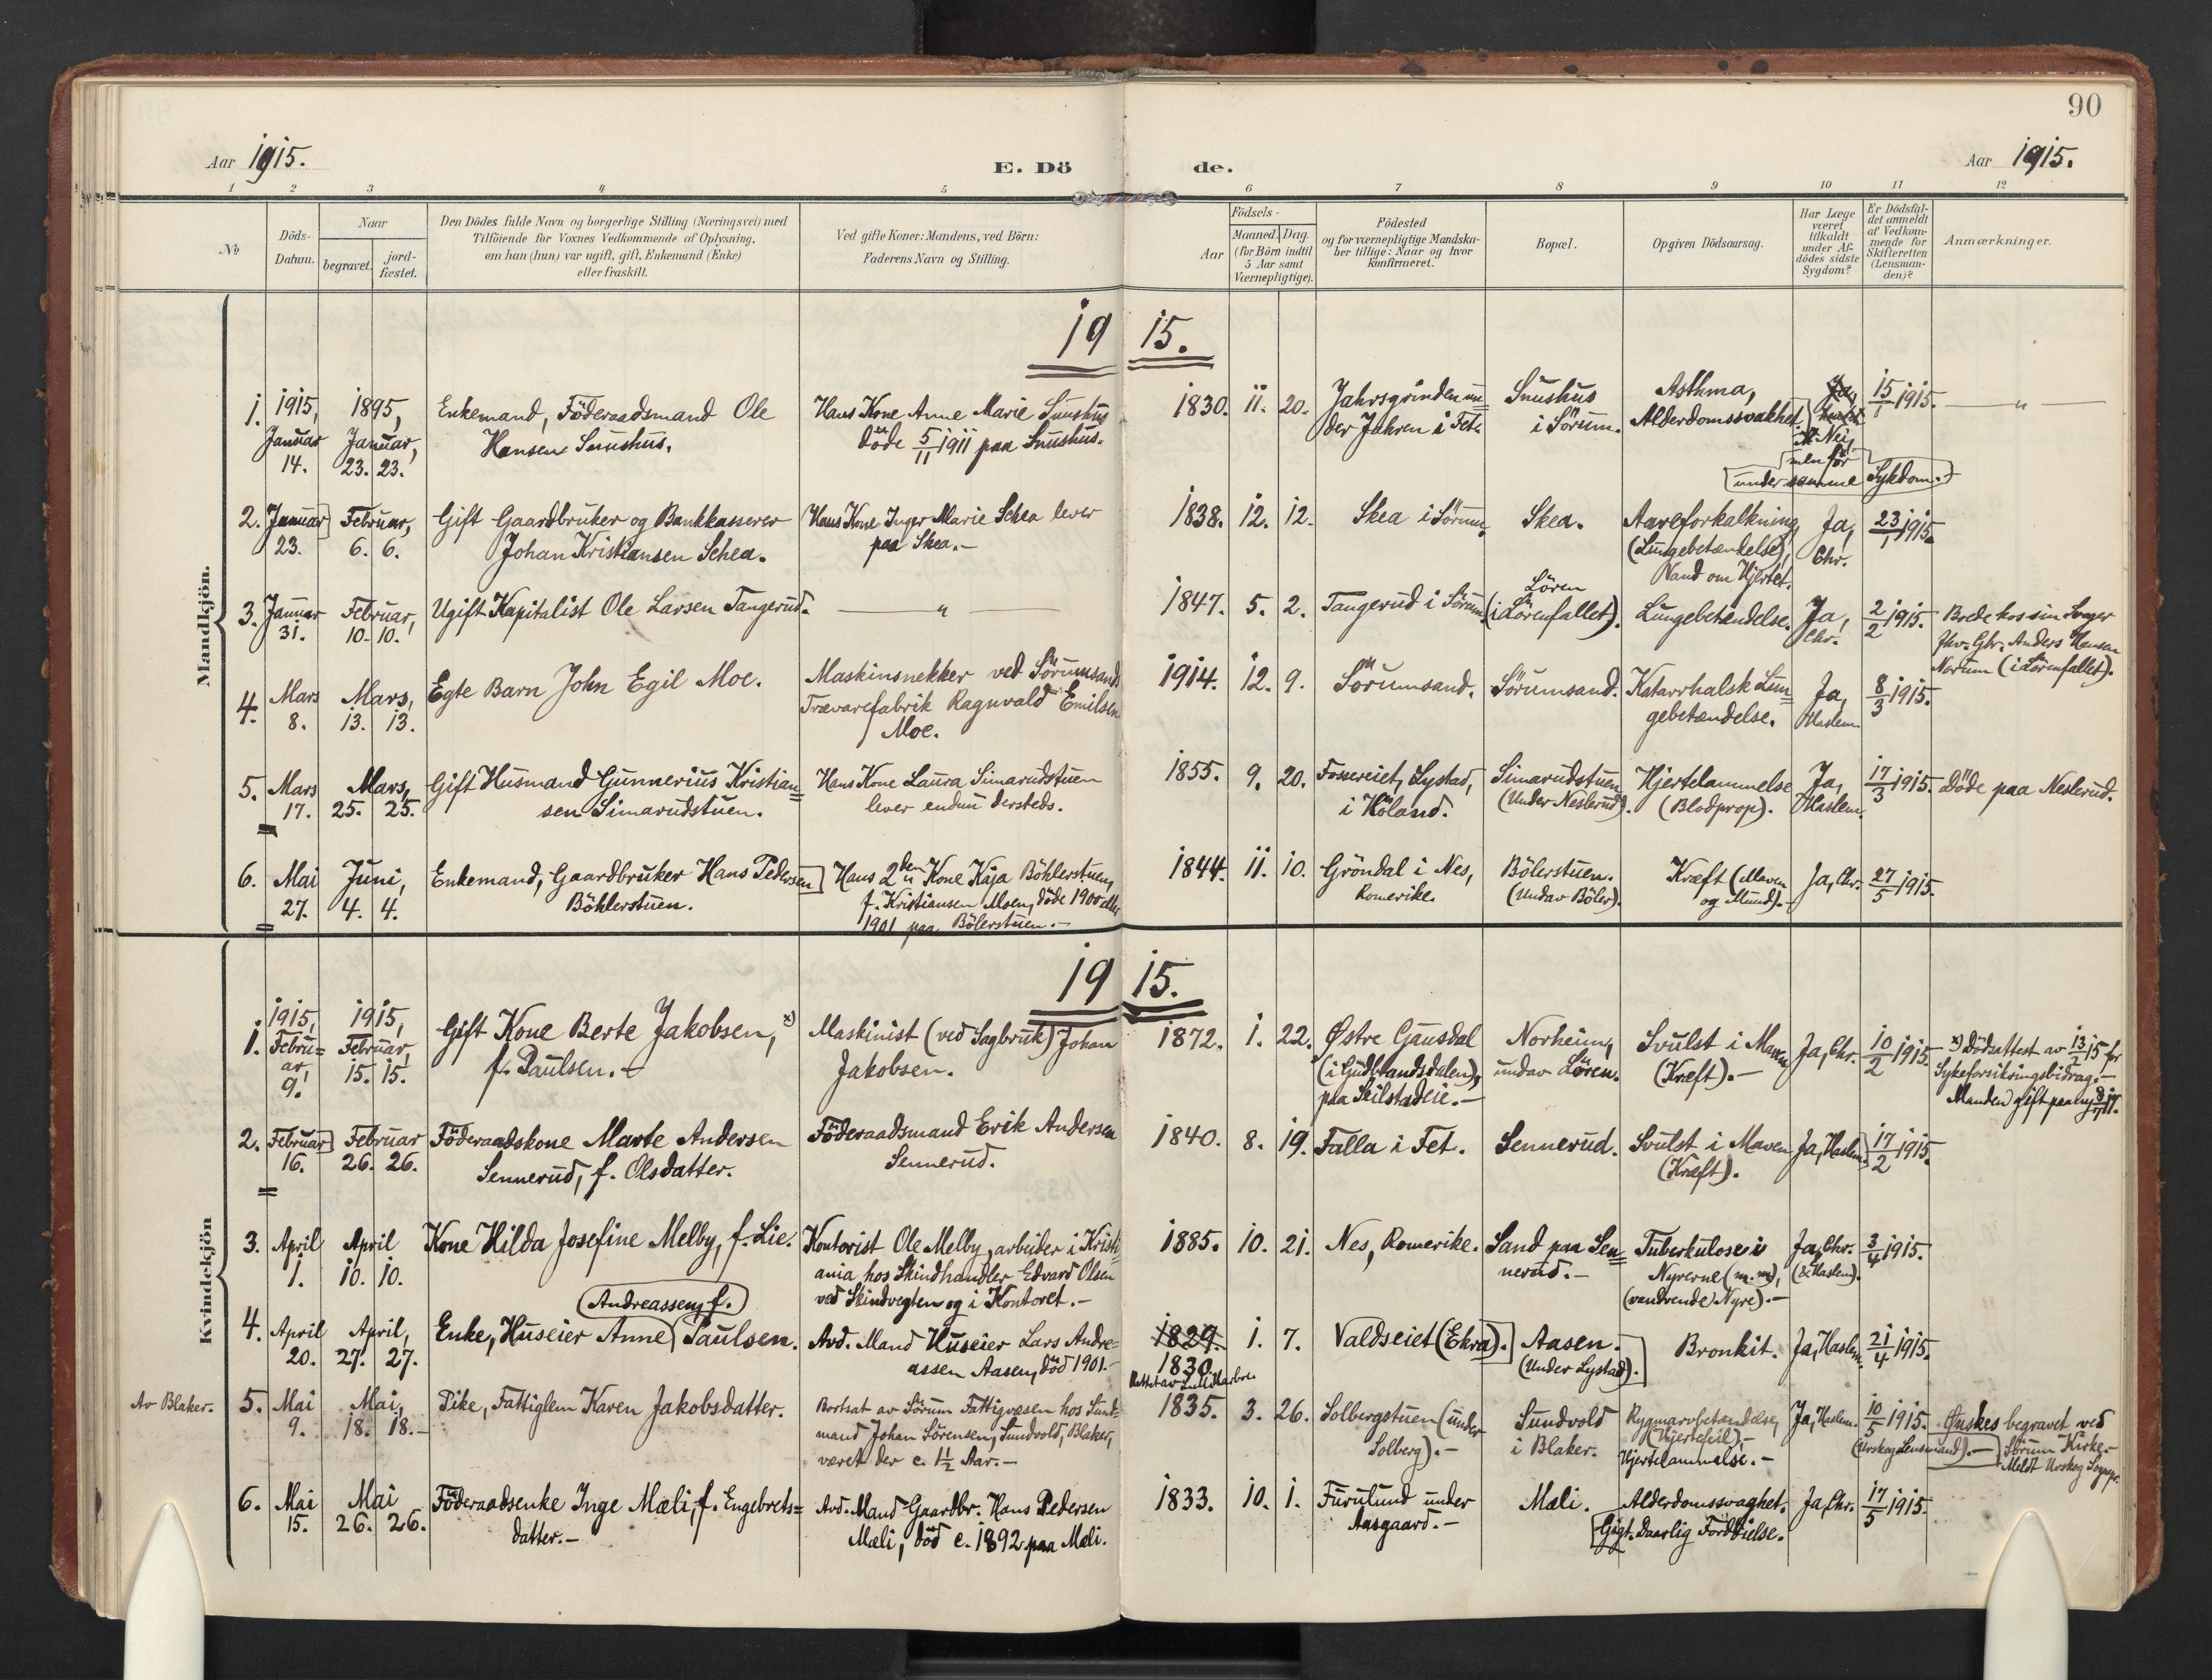 90
Aar 1915.
E. Dö de.
Aar 1915.
1 2 3 4 5 6 7 8 9 10 11 12
No
Döds-
Datum.
Naar
begravet.
jord-
fæstet.
Den Dödes fulde Navn og borgerlige Stilling (Næringsvei) med
Tilföiende for Voxnes Vedkommende af Oplysning,
om han (hun) var ugift, gift, Enkemand (Enke)
eller fraskilt.
Ved gifte Koner: Mandens, ved Börn:
Faderens Navn og Stilling.
Aar
Födsels-
Maaned. Dag.
(for Börn indtil
5 Aar samt
Værnepligtige).
Födested
og for værnepligtige Mandska-
ber tillige: Naar og hvor
konfirmeret.
Bopæl.
Opgiven Dödsaarsag.
Har Læge
været
tilkaldt
under Af-
dödes sidste
Sygdom?
Er Dödsfal-
det anmeldt
af Vedkom-
mende for
Skifteretten
(Lensman-
den)?
Anmærkninger.
Mandkjön.
19 15.
1. 1915, Januar 14.
1895, Januar, 23. 23.
Enkemand, Föderaadsmand Ole
Hansen Snushus.
Hans Kone Anne Marie Snushus
döde 5/11 1911 paa Snushus.
1830. 11. 20.
Jahrsgrinden un=
der Jahren i Fet.
Snushus
i Sörum.
Asthma,
Alderdomssvakhet.
Ja,
Nei,
men før
under samme Sykdom.)
15/1 1915.
— " —
2. Januar 23.
Februar, 6. 6.
Gift Gaardbruker og Bankkasserer
Johan Kristiansen Schea.
Hans Kone Inger Marie Schea lever
paa Skea.-
1838. 12. 12.
Skea i Sörum.
Skea.
Aareforkalkning,
(Lungebetændelse),
Vand om Hjertet.
Ja,
Chr.
23/1 1915.
3. Januar 31.
Februar, 10. 10.
Ugift Kapitalist Ole Larsen Tangerud.
— " —
1847. 5. 2.
Tangerud i Sörum.
Lören
(i Lörenfallet).
Lungebetændelse.
Ja,
Chr.
2/2 1915.
Boede hos sin Svoger
fhv. Gbr. Anders Hansen
Norum (i Lörenfallet).
4. Mars 8.
Mars, 13. 13.
Egte Barn John Egil Moe.
Maskinsnekker ved Sörumsand
Trævarefabrik Ragnvald Emilsen
Moe.
1914. 12. 9.
Sörumsand.
Sörumsand.
Katarrhalsk Lun=
gebetændelse.
Ja,
Haslem
8/3 1915.
5. Mars 17.
Mars, 25. 25.
Gift Husmand Gunnerius Kristian=
sen Simarudstuen.
Hans Kone Laura Simarudstuen
lever endnu dersteds.
1855. 9. 20.
Fossereiet, Lystad,
i Höland.
Simarudstuen
(Under Neslerud).
Hjertelammelse
(Blodprop).
Ja,
Haslem.
17/3 1915.
Döde paa Neslerud.
6. Mai 27.
Juni, 4. 4.
Enkemand, Gaardbruker Hans Pedersen
Böhlerstuen.
Hans 2den Kone Kaja Böhlerstuen,
f. Kristiansen Moen, döde 1900 eller
1901 paa Bölerstuen.-
1844. 11. 10.
Gröndal i Nes,
Romerike.
Bölerstuen.
(Undav Böler).
Kræft (Maven
og Mund).-
Ja, Chr.
27/5 1915.
Kvindekjön
19 15.
1. 1915, Febru=ar 9!
1915, Februar, 15. 15.
Gift Kone Berte Jakobsen, x)
f. Paulsen.-
Maskinist (ved Sagbruk) Johan
Jakobsen.
1872. 1. 22.
Østre Gausdal
(i Gudbrandsdalen),
paa Skilstadeie.-
Norheim,
undav Lören.
Svulst i Maven
(Kræft).-
Ja, Chr.
10/2 1915.
x) Dödsattest av 13/2 15 for
Sykeforsikringsbidrag.-
Manden gift paany
2. Februar 16.
Februar 26. 26.
Föderaadskone Marte Andersen
Sennerud, f. Olsdatter.
Föderaadsmand Erik Andersen
Sennerud.
1840. 8. 19.
Falla i Fet.
Sennerud.
Svulst i Maven
(Kræft).
Ja, Haslem.
17/2 1915.
3. April 1.
April 10. 10.
Kone Hilda Josefine Melby, f. Lie.
Kontorist Ole Melby, arbeider i Kristi=
ania hos Skindhandler Edvard Olsen
ved Skindvegten og i Kontoret.-
1885. 10. 21.
Nes, Romerike.
Sand paa Sen=
nerud.-
Tuberkulose i
Nyrerne (m.m),
(vandrende Nyre).-
Ja, Chr.
(& Haslem).
3/4 1915.
4. April 20.
April, 27. 27.
(Andreassen, f.)
Enke, Huseier Anne Paulsen.
Avd. Mand Huseier Lars Andre=
assen Aasen, död 1901.-
1829. 1. 7.
1830
Valdseiet (Ekra).
Aasen.
(Under Lystad).
Bronkit.
Ja, Haslem.
21/4 1915.
Av Blaker.
5. Mai 9.
Mai, 18. 18.-
Pike, Fattiglem Karen Jakobsdatter.
Bortsat av Sörum Fattigvæsen hos Sund=
mand Johan Sörensen, Sundvold, Blaker,
været der c. 1½ Aar.-
1835. 3. 26.
Solbergstuen (under
Solberg).-
Sundvold
i Blaker.
Rygmarvbetændelse,
(Hjertefeil),-
Hjertelammelse.-
Ja, Haslem.
10/5 1915.
(Urskog Lensmand).-
Ønskes begravet ved
Sörum Kirke.-
Meldt Urskog Sognepr.
6. Mai 15.
Mai 26. 26.
Föderaadsenke Inge Mæli, f. Engebrets=
datter.-
Avd. Mand Gaardbr. Hans Pedersen
Mæli, död c. 1892 paa Mæli.
1833. 10. 1.
Furulund under
Aasgaard.-
Mæli.
Alderdomssvaghet.
Gigt. Daarlig Fordöielse.
Ja, Chr.
17/5 1915.